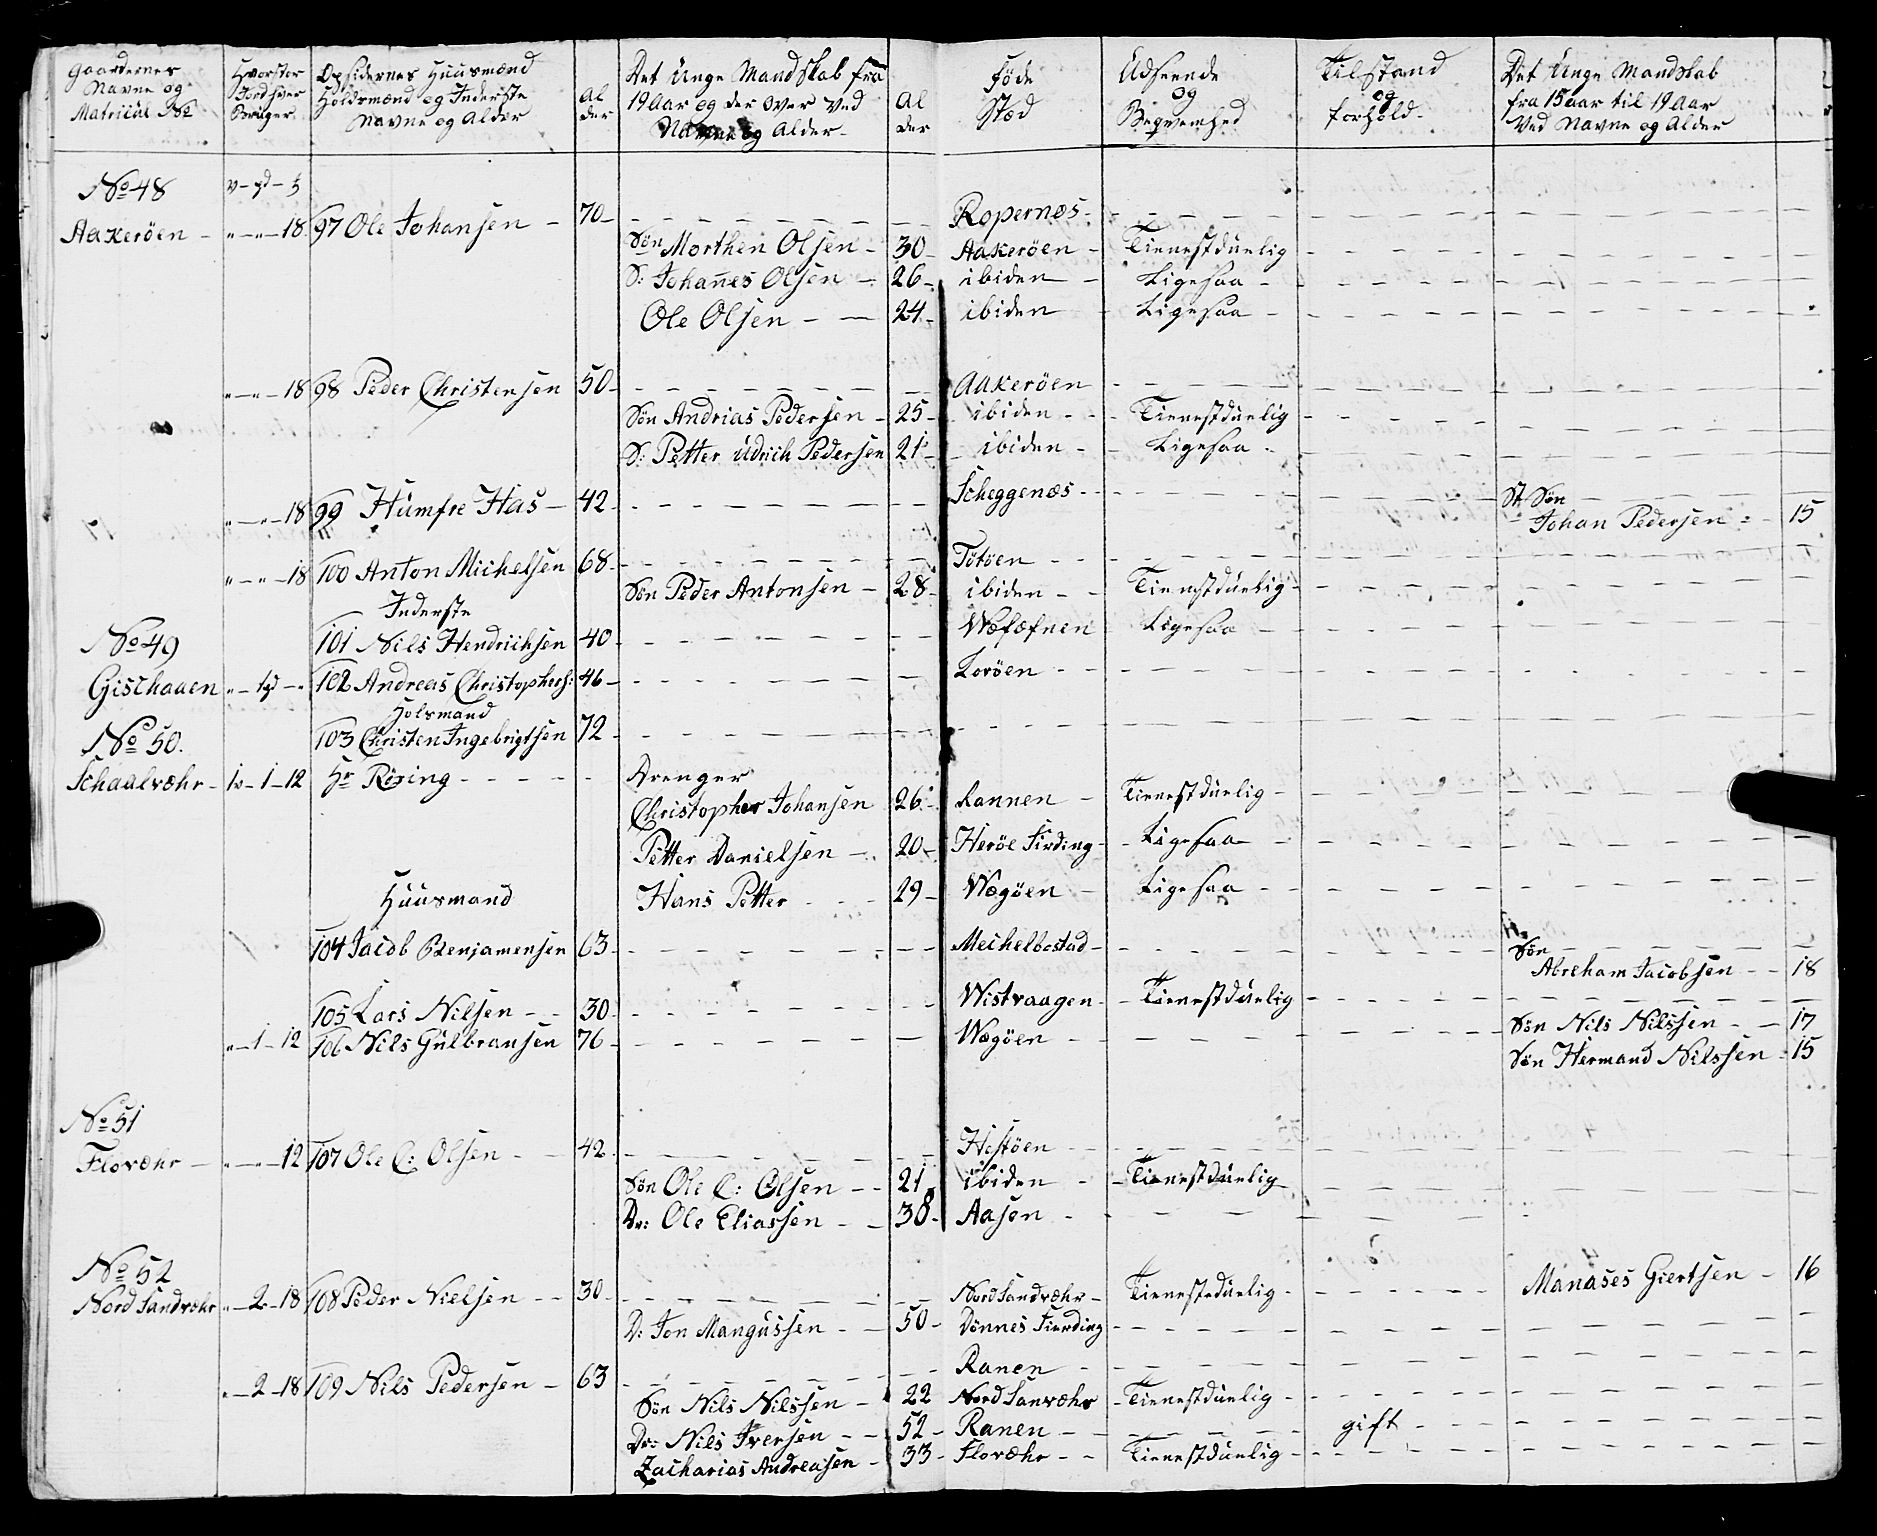 Gaardernes Navne og Matricul No | Hvorstor Jord hver Bruger | Opsidernes Huusmænd Holdsmænd og Inderste Navne og Alder | Al der | Det Unge Mandskab fra 19 Aar og der over ved Navne og Alder | Al der | Føde Stæd | Udseende og Beqvemhed | Tilstand og forhold | Det Unge Mandskab fra 15 aar til 19 Aar Ved Navne og Alder
No 48
Aakerøen - 18 97 Ole Johansen - 70 - Ropernæs
Søn Morthen Olsen - 30 - Aakerøen - Tienestdüelig
S: Johan̄es Olsen - 26 - ibiden - Ligesaa
Ole Olsen - 24 - ibiden Ligesaa
18 98 Peder Christensen 50 - Aakerøen
Søn Andrias Pedersen - 25 - ibiden - Tienestdüelig
S: Petter Udrich Pedersen 21 - ibiden - Ligesaa
18 99 Hümfre Has - 42 - Scheggenæs - St Søn
Johan Pedersen - 15
18 100 Anton Michelsen 68 - Tötöen
Søn Peder Antonsen - 28 - ibiden - Tienestdüelig
Inderste
No 49 101 Nils Hendrichsen 40 - Wefæfnen Ligesaa
Gischaaen 102 Andreas Christophers: 46 - Lorøen
Holsmand
No 50. 103 Christen Ingebrigtsen 72
Schaalvæhr - 1v - 1 - 12 Hr Röring - Drenger
Christopher Johansen 26 - Rannen - Tienestdüelig
Petter Danielsen - 20 - Herøe Firding - Ligesaa
Huusmand Hans Petter - 29 - Wægøen Ligesaa
104 Jacob Benjamensen 63 - Meichelbostad - Søn
Abreham Jacobsen - 18
105 Lars Nilsen - 30 - Wistvaagen - Tienestdüelig
1 - 12 106 Nils Gülbransen 76 - Wægøen - Søn Nils Nilssen - 17
Søn Hermand Nilssen - 15
No 51
Flovæhr - 12 107 Ole C: Olsen - 42 - Hestøen
Søn Ole C: Olsen - 21 ibiden - Tienestdüelig
Dr: Ole Eliassen - 38 - Aasen
No 52
Nord Sandvæhr - 2 - 18 108 Peder Nielsen - 30 - Nord Sandvæhr - Tienestedüelig - Manases Giertsen - 16
D: Jon Mangüssen - 50 - Dönnes Fierding
2 - 18 109 Nils Pedersen - 63 Ranen
Søn Nils Nilssen - 22 Nord Sanvæhr - Tienestdüelig
Dr: Nils Iversen - 52 - Ranen - gift
Zacharias Andreasen - 33 - Flovæhr - Tienestdüelig